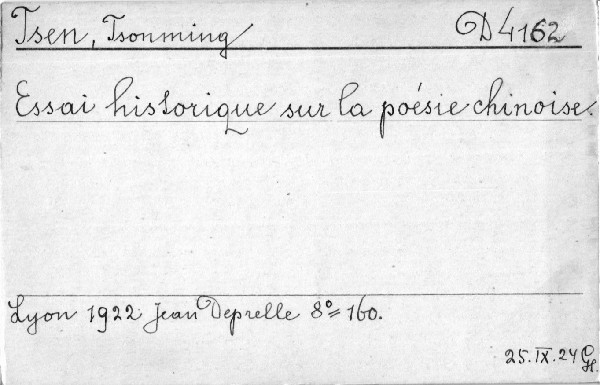 Tsen, Tsonming D 4162
Essai historique sur la poésie chinoise.
Lyon 1922 Jean Deprelle 8° = 160.
25.IX.24 GH.